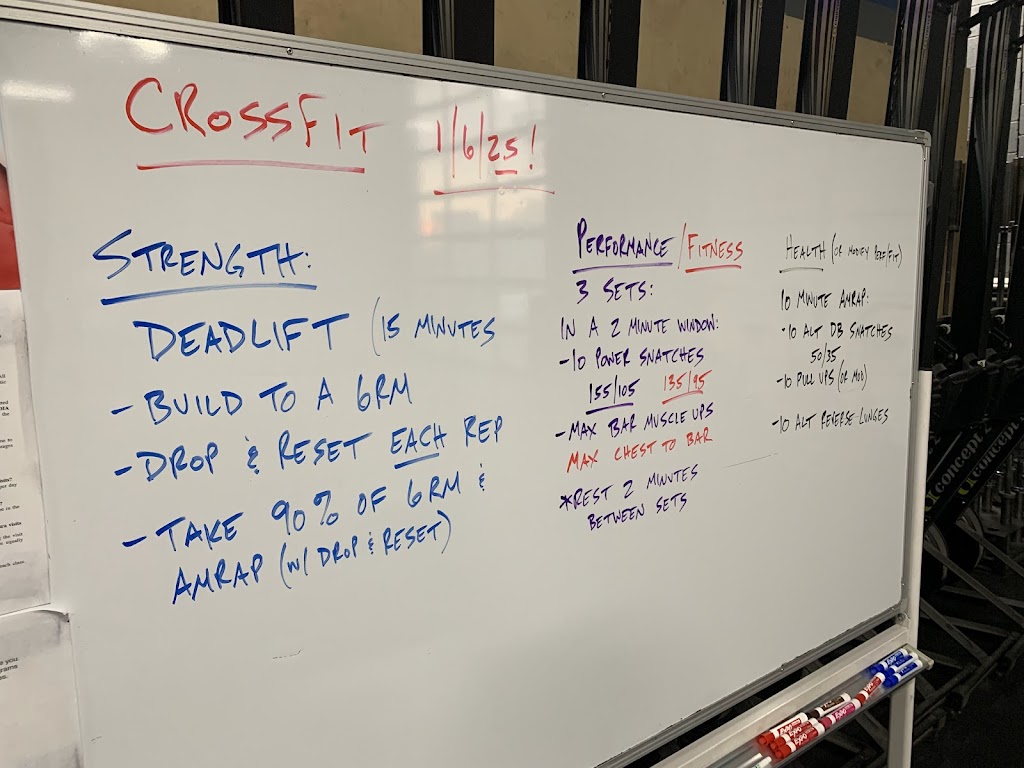 CROSSFIT 1/6/25!
STRENGTH:
DEADLIFT (15 MINUTES
- BUILD TO A 6RM
- DROP & RESET EACH REP
- TAKE 90% OF 6RM &
AMRAP (W/ DROP & RESET)
PERFORMANCE/FITNESS
3 SETS:
IN A 2 MINUTE WINDOW:
- 10 POWER SNATCHES
155/105 135/95
- MAX BAR MUSCLE UPS
MAX CHEST TO BAR
*REST 2 MINUTES
BETWEEN SETS
HEALTH (OR MODIFY PERF/FIT)
10 MINUTE AMRAP:
- 10 ALT DB SNATCHES
50/35
- 10 PULL UPS (OR MOD)
- 10 ALT REVERSE LUNGES
concept
concept
EXPO
EXPO
EXPO